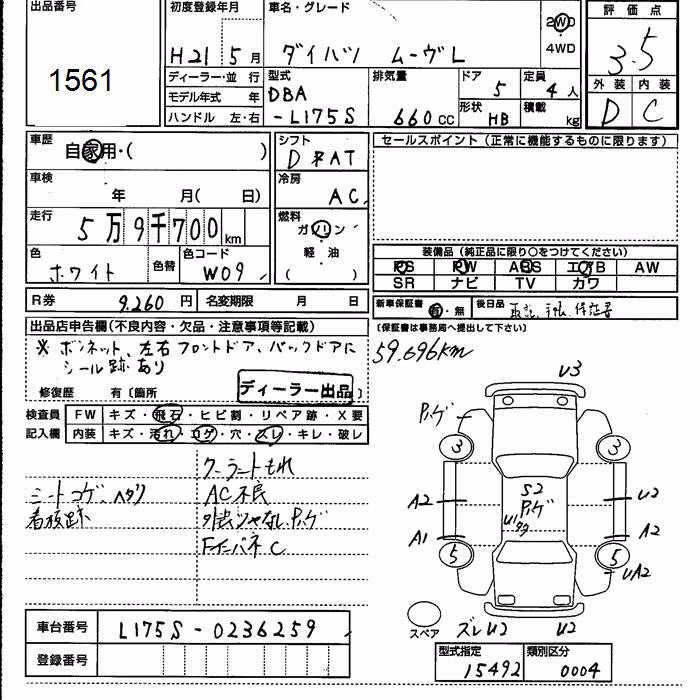 出品番号
1561
初度登録年月
H21 5月
車名・グレード
ダイハツ ムーヴL
2WD
4WD
評価点
3.5
外装 内装
D C
ディーラー・並行
モデル年式 年
ハンドル 左・右
型式
DBA
-L175S
排気量
660cc
ドア
5
定員
4人
形状
HB
積載
kg
車歴
自家用・( )
車検
年 月( 日)
走行
5万9千700km
色
ホワイト
色替
色コード
W09
シフト
D FAT
冷房
AC
燃料
ガソリン
軽油
( )
セールスポイント (正常に機能するものに限ります)
装備品 (純正品に限り○をつけてください)
PS PW ABS エアB AW
SR ナビ TV カワ
R券 9.260円 名変期限 月 日
新車保証書 有・無 後日品 取説、手帳、保証書
(保証書は事務局へ提出して下さい)
出品店申告欄(不良内容・欠品・注意事項等記載)
※ ボンネット、左右フロントドア、バックドアに
シール跡あり
修復歴 有〔箇所
ディーラー出品
59.696km
検査員 FW キズ・飛石・ヒビ割・リペア跡・X要
記入欄 内装 キズ・汚れ・コゲ・穴・スレ・キレ・破レ
クーラントもれ
シートコゲ、ヘタリ
AC不良
外装ツヤなし、Pハゲ
C
U3
Pハゲ
3
3
A2
S2
Pハゲ
U2
U1
A1
A2
5
5
UA2
スペア
ズレU2
U2
車台番号 L175S-0236259
登録番号
型式指定 15492
類別区分 0004